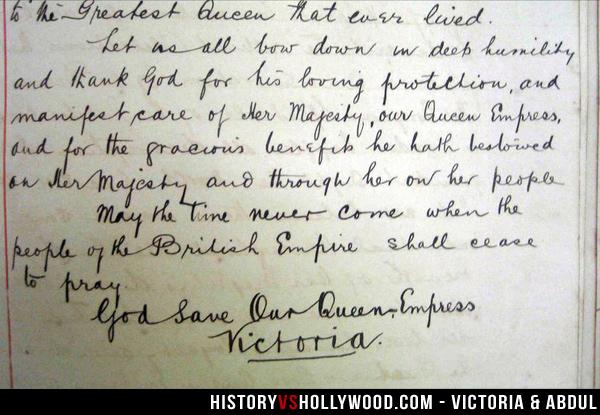 to the Greatest Queen that ever lived.
Let us all bow down in deep humility
and thank God for his loving protection, and
manifest care of Her Majesty, our Queen Empress,
and for the gracious benefits he hath bestowed
on Her Majesty and through her on her people
May the time never come when the
people of the British Empire shall cease
to pray
God Save Our Queen-Empress
Victoria.
HISTORYVSHOLLYWOOD.COM - VICTORIA & ABDUL